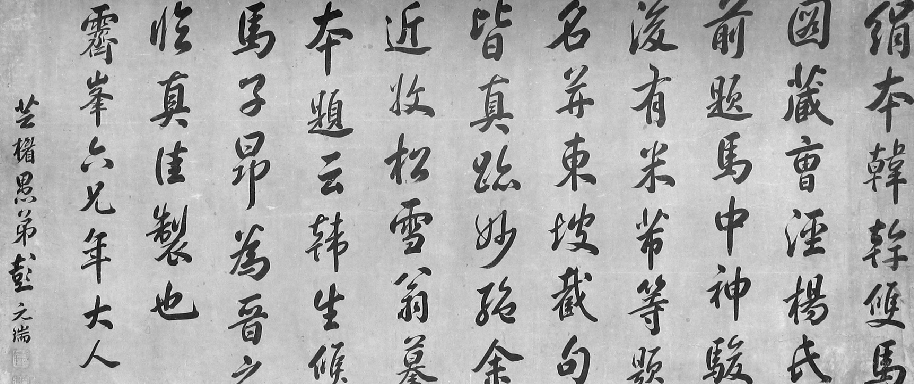 絹本韓幹雙馬
圖藏曹涇楊氏
前題馬中神駿
後有米芾等題
名并東坡截句
皆真跡妙絕余
近收松雪翁摹
本題云韓生候
馬子昂為晉之
臨真佳製也
霽峯六兄年大人
芸楣愚弟彭元瑞